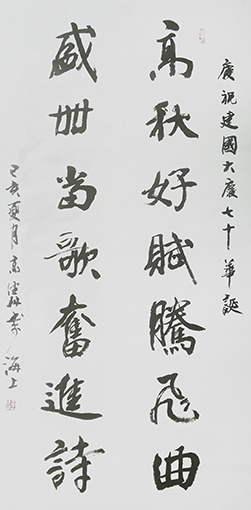 慶祝建國大慶七十華誕
高秋好賦騰飛曲
盛世當歌奮進詩
己亥夏月高
海上